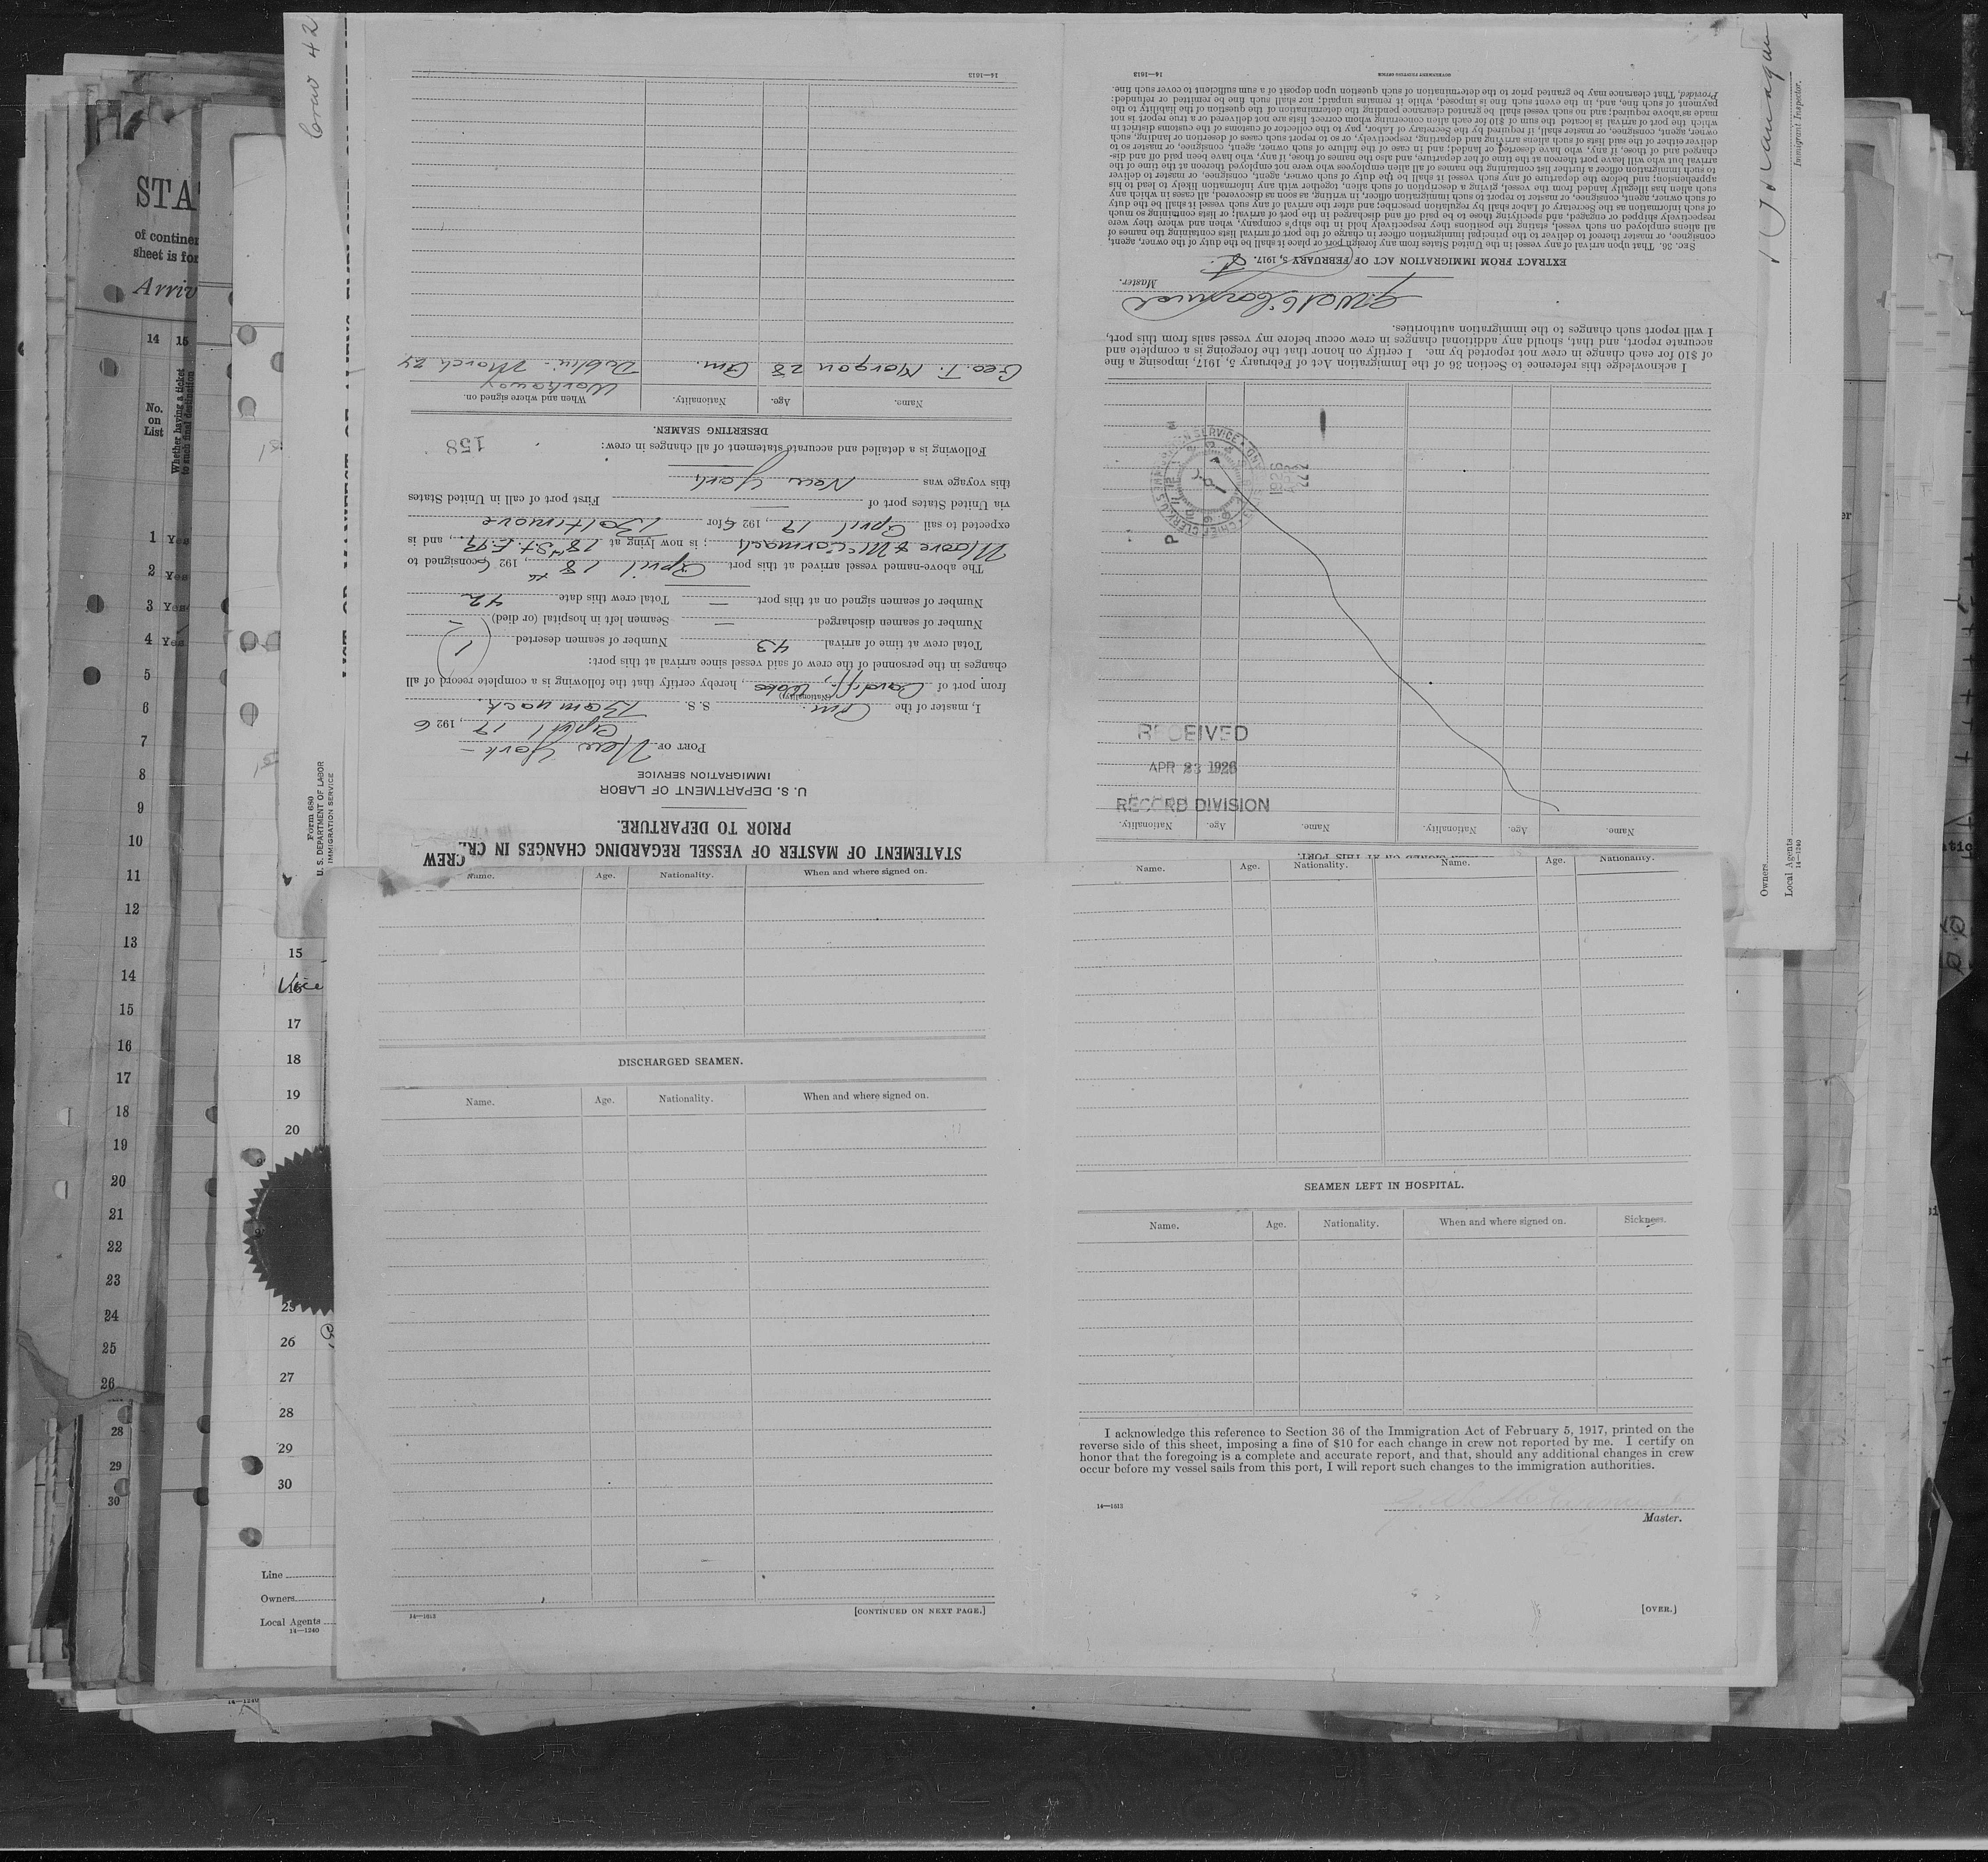 STATEMENT OF MASTER OF VESSEL REGARDING CHANGES IN CREW
PRIOR TO DEPARTURE.
U. S. DEPARTMENT OF LABOR
IMMIGRATION SERVICE
PORT OF New York
April 17, 1926
I, master of the Am. S. S.
(Nationality)
from port of Cardiff, Wales, hereby certify that the following is a complete record of all
changes in the personnel of the crew of said vessel since arrival at this port:
Total crew at time of arrival 43 Number of seamen deserted 1
Number of seamen discharged — Seamen left in hospital (or died) —
Number of seamen signed on at this port — Total crew this date 42
The above-named vessel arrived at this port April 18th, 1926 consigned to
Moore & McCormack; is now lying at 18th St., and is
expected to sail April 19, 1926 for Baltimore
via United States port of First port of call in United States
this voyage was New York
Following is a detailed and accurate statement of all changes in crew:
158
DESERTING SEAMEN.
Name. Age. Nationality. When and where signed on.
Workaway
Geo. T. Morgan 28 Am. Dublin - March 24
14—1613
Name. Age. Nationality. Name. Age. Nationality.
RECEIVED
APR 23 1926
RECORD DIVISION
I acknowledge this reference to Section 36 of the Immigration Act of February 5, 1917, imposing a fine
of $10 for each change in crew not reported by me. I certify on honor that the foregoing is a complete and
accurate report, and that, should any additional changes in crew occur before my vessel sails from this port,
I will report such changes to the immigration authorities.
Master.
EXTRACT FROM IMMIGRATION ACT OF FEBRUARY 5, 1917.
Sec. 36. That upon arrival of any vessel in the United States from any foreign port or place it shall be the duty of the owner, agent,
consignee, or master thereof to deliver to the principal immigration officer in charge of the port of arrival lists containing the names of
all aliens employed on such vessel, stating the positions they respectively hold in the ship's company, when and where they were
respectively shipped or engaged, and specifying those to be paid off and discharged in the port of arrival; or lists containing so much
of such information as the Secretary of Labor shall by regulation prescribe; and after the arrival of any such vessel it shall be the duty
of such owner, agent, consignee, or master to report to such immigration officer, in writing, as soon as discovered, all cases in which any
such alien has illegally landed from the vessel, giving a description of such alien, together with any information likely to lead to his
apprehension; and before the departure of any such vessel it shall be the duty of such owner, agent, consignee, or master to deliver
to such immigration officer a further list containing the names of all alien employees who were not employed thereon at the time of the
arrival but who will leave port thereon at the time of her departure, and also the names of those, if any, who have been paid off and dis-
charged and of those, if any, who have deserted or landed; and in case of the failure of such owner, agent, consignee, or master so to
deliver either of the said lists of such aliens arriving and departing, respectively, or so to report such cases of desertion or landing, such
owner, agent, consignee, or master shall, if required by the Secretary of Labor, pay to the collector of customs of the customs district in
which the port of arrival is located the sum of $10 for each alien concerning whom correct lists are not delivered or a true report is not
made as above required; and no such vessel shall be granted clearance pending the determination of the question of the liability to the
payment of such fine, and, in the event such fine is imposed, while it remains unpaid; nor shall such fine be remitted or refunded:
Provided, That clearance may be granted prior to the determination of such question upon deposit of a sum sufficient to cover such fine.
14—1613 GOVERNMENT PRINTING OFFICE
Crew 42
Form 680
U. S. DEPARTMENT OF LABOR
IMMIGRATION SERVICE
Immigrant Inspector.
Owners
Local Agents
14—1240
STA
of contine
sheet is for
Arriv
14 15
No.
on
List
Whether having a ticket
to such final destination
1 Yes
2 Yes
3 Yes
4 Yes
5
6
7
8
9
10
11
12
13
14
15
16
17
18
19
20
21
22
23
24
25
26
28
29
30
15
17
18
19
20
25
26
27
28
29
30
Line
Owners
Local Agents
14—1240
Name. Age. Nationality. When and where signed on.
DISCHARGED SEAMEN.
Name. Age. Nationality. When and where signed on.
14—1613 [CONTINUED ON NEXT PAGE.]
Name. Age. Nationality. Name. Age. Nationality.
SEAMEN LEFT IN HOSPITAL.
Name. Age. Nationality. When and where signed on. Sickness.
I acknowledge this reference to Section 36 of the Immigration Act of February 5, 1917, printed on the
reverse side of this sheet, imposing a fine of $10 for each change in crew not reported by me. I certify on
honor that the foregoing is a complete and accurate report, and that, should any additional changes in crew
occur before my vessel sails from this port, I will report such changes to the immigration authorities.
14—1613
Master.
[OVER.]